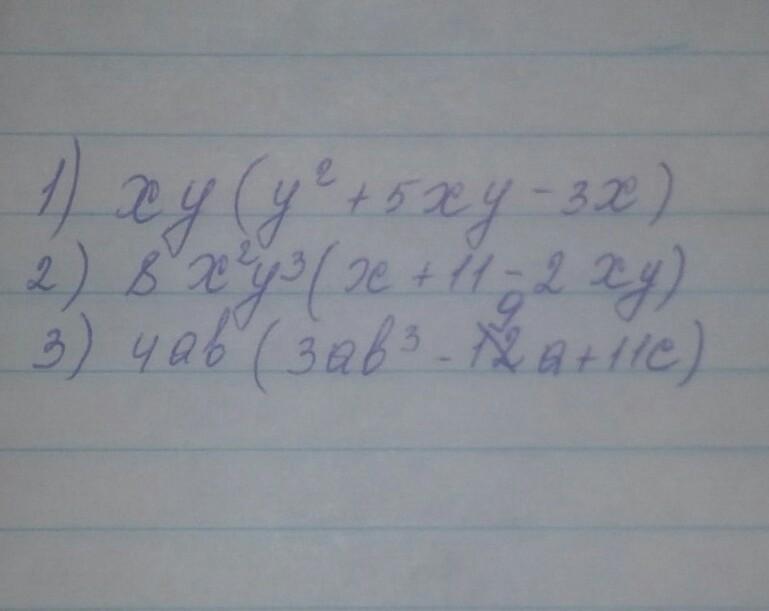 1) xy(y²+5xy-3x)
2) 8x²y³(x+11-2xy)
3) 4ab(3ab³-9a+11c)